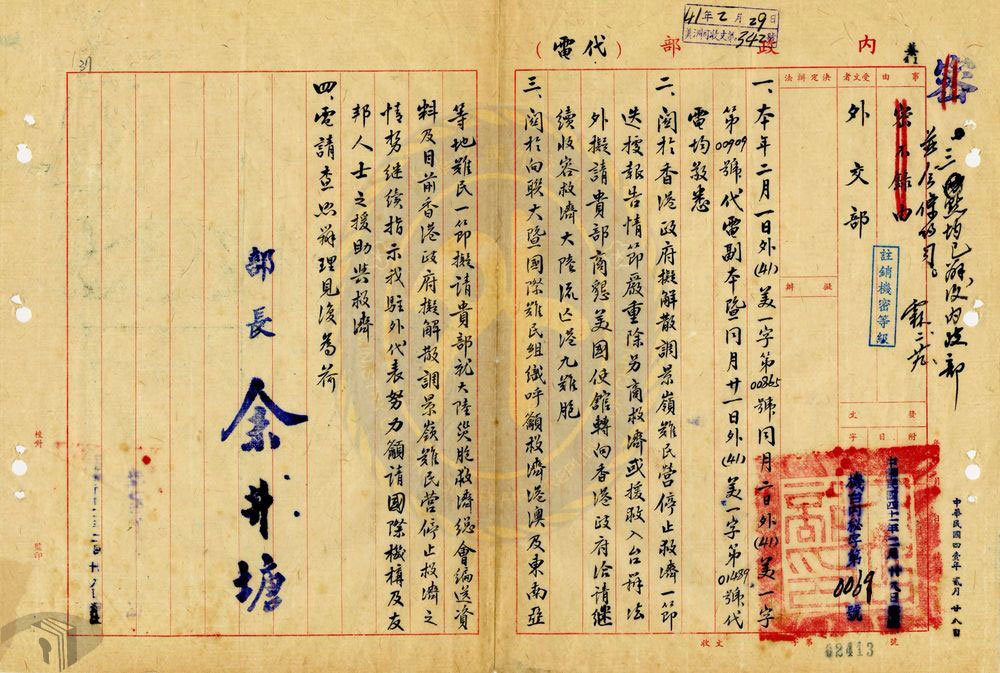 內政部（代電）
41年2月29日
美洲司收文第342號
事由
受文者
決定辦法
擬辦
外交部
密不錄由
註銷機密等級
三點均已辦復內政部
發文
附
日
字
中華民國四壹年貳月廿八日
0069號
收文
字第
號
02413
一、本年二月一日外(41)美一字第00865號同月二日外(41)美一字
第00909號代電副本暨同月廿一日外(41)美一字第01489號代
電均敬悉
二、關於香港政府擬解散調景嶺難民營停止救濟一節
迭據報告情節嚴重除另商救濟或援救入台辦法
外擬請貴部商懇美國使館轉向香港政府洽請繼
續收容救濟大陸流亡港九難胞
三、關於向聯大暨國際難民組織呼籲救濟港澳及東南亞
等地難民一節擬請貴部就大陸災胞救濟總會編送資
料及目前香港政府擬解散調景嶺難民營停止救濟之
情勢繼續指示我駐外代表努力籲請國際機構及友
邦人士之援助與救濟
四、電請查照辦理見復為荷
部長余井塘
校對
監印